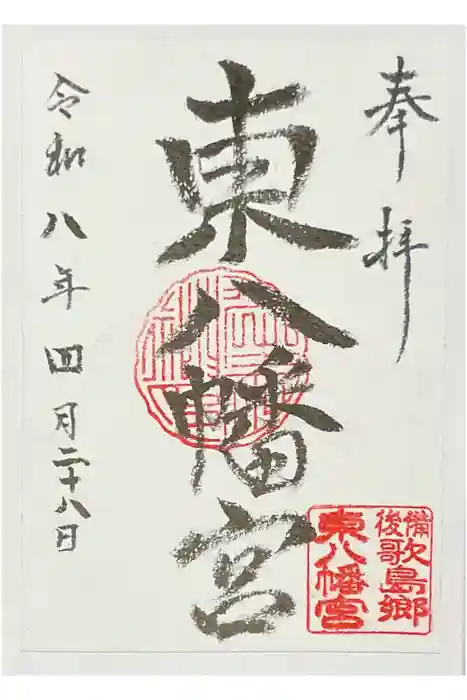 奉拝
東八幡宮
備後歌島郷
東八幡宮
令和八年四月二十八日